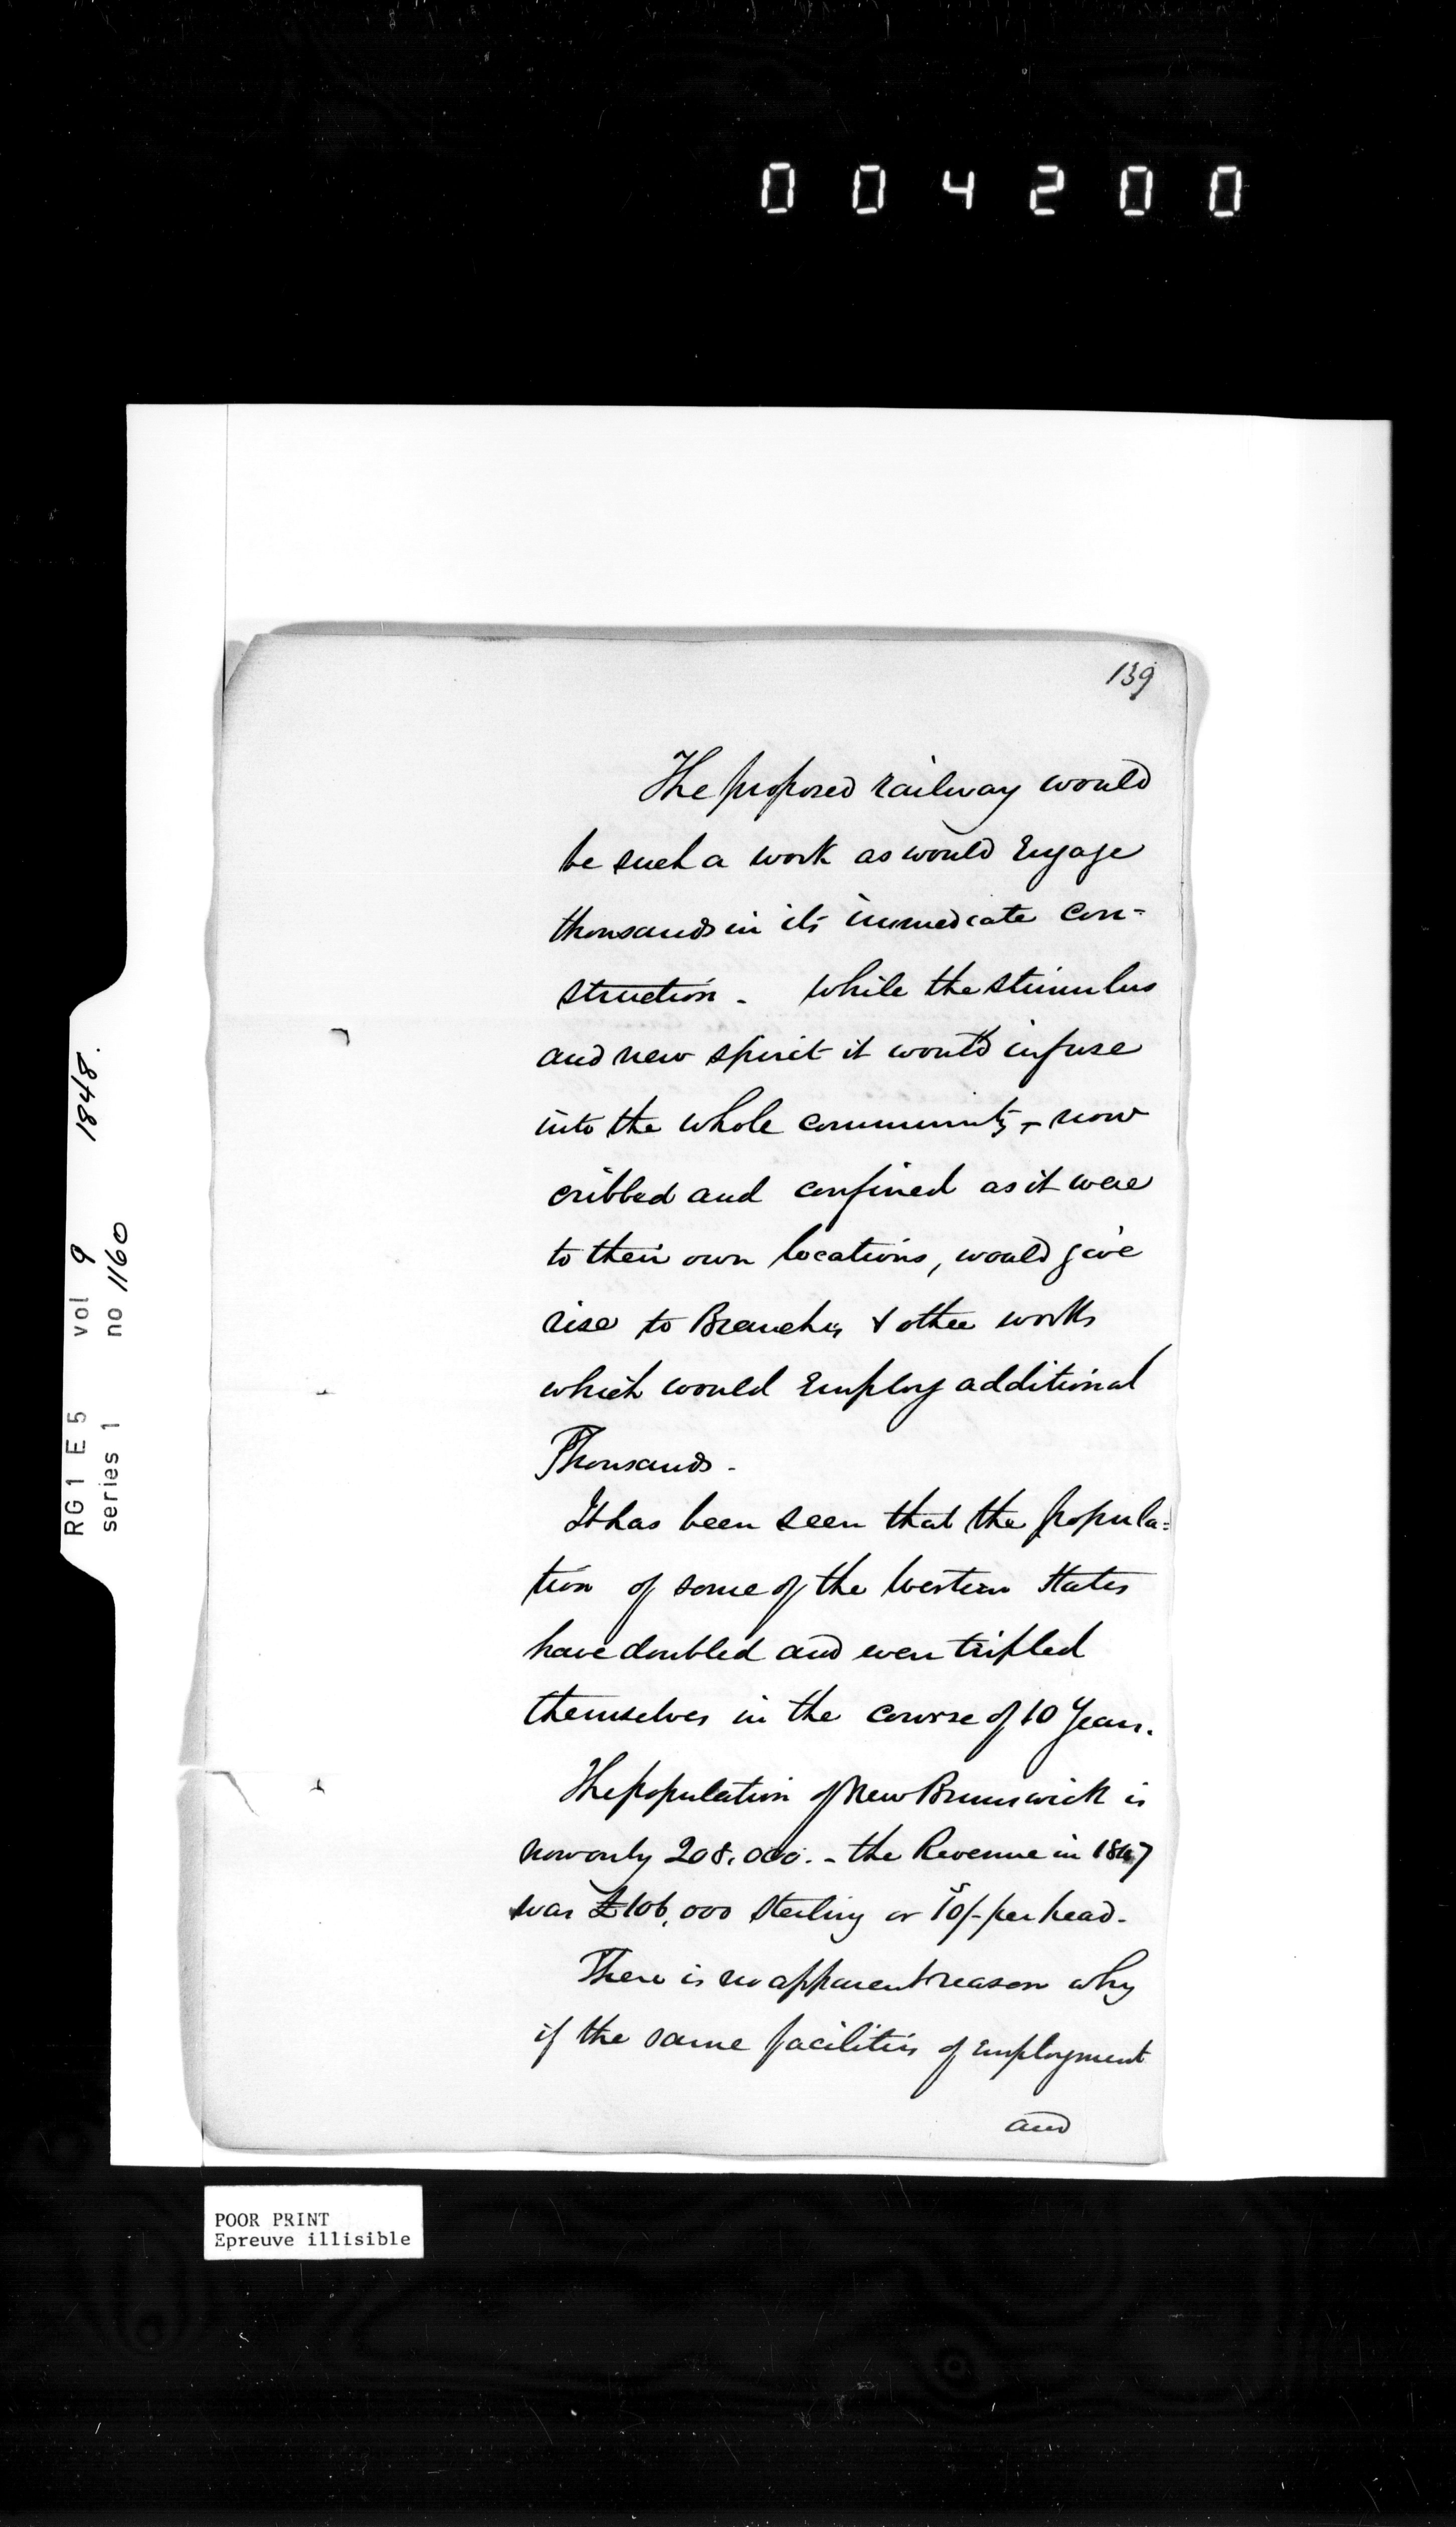 004200
139
The proposed railway would
be such a work as would Engage
thousands in its immediate con=
struction - While the stimulus
and new spirit it would infuse
into the whole community - now
cribbed and confined as it were
to their own locations, would give
rise to Branches & other works
which would Employ additional
Thousands -
It has been seen that the popula=
tion of some of the Western States
have doubled and even tripled
themselves in the course of 10 Years.
The population of New Brunswick is
now only 208,000. - the Revenue in 1847
was £106,000 Sterling or 10/- per head -
There is no apparent reason why
if the same facilities of employment
and
RG1 E5 vol 9 1848.
series 1 no 1160
POOR PRINT
Epreuve illisible